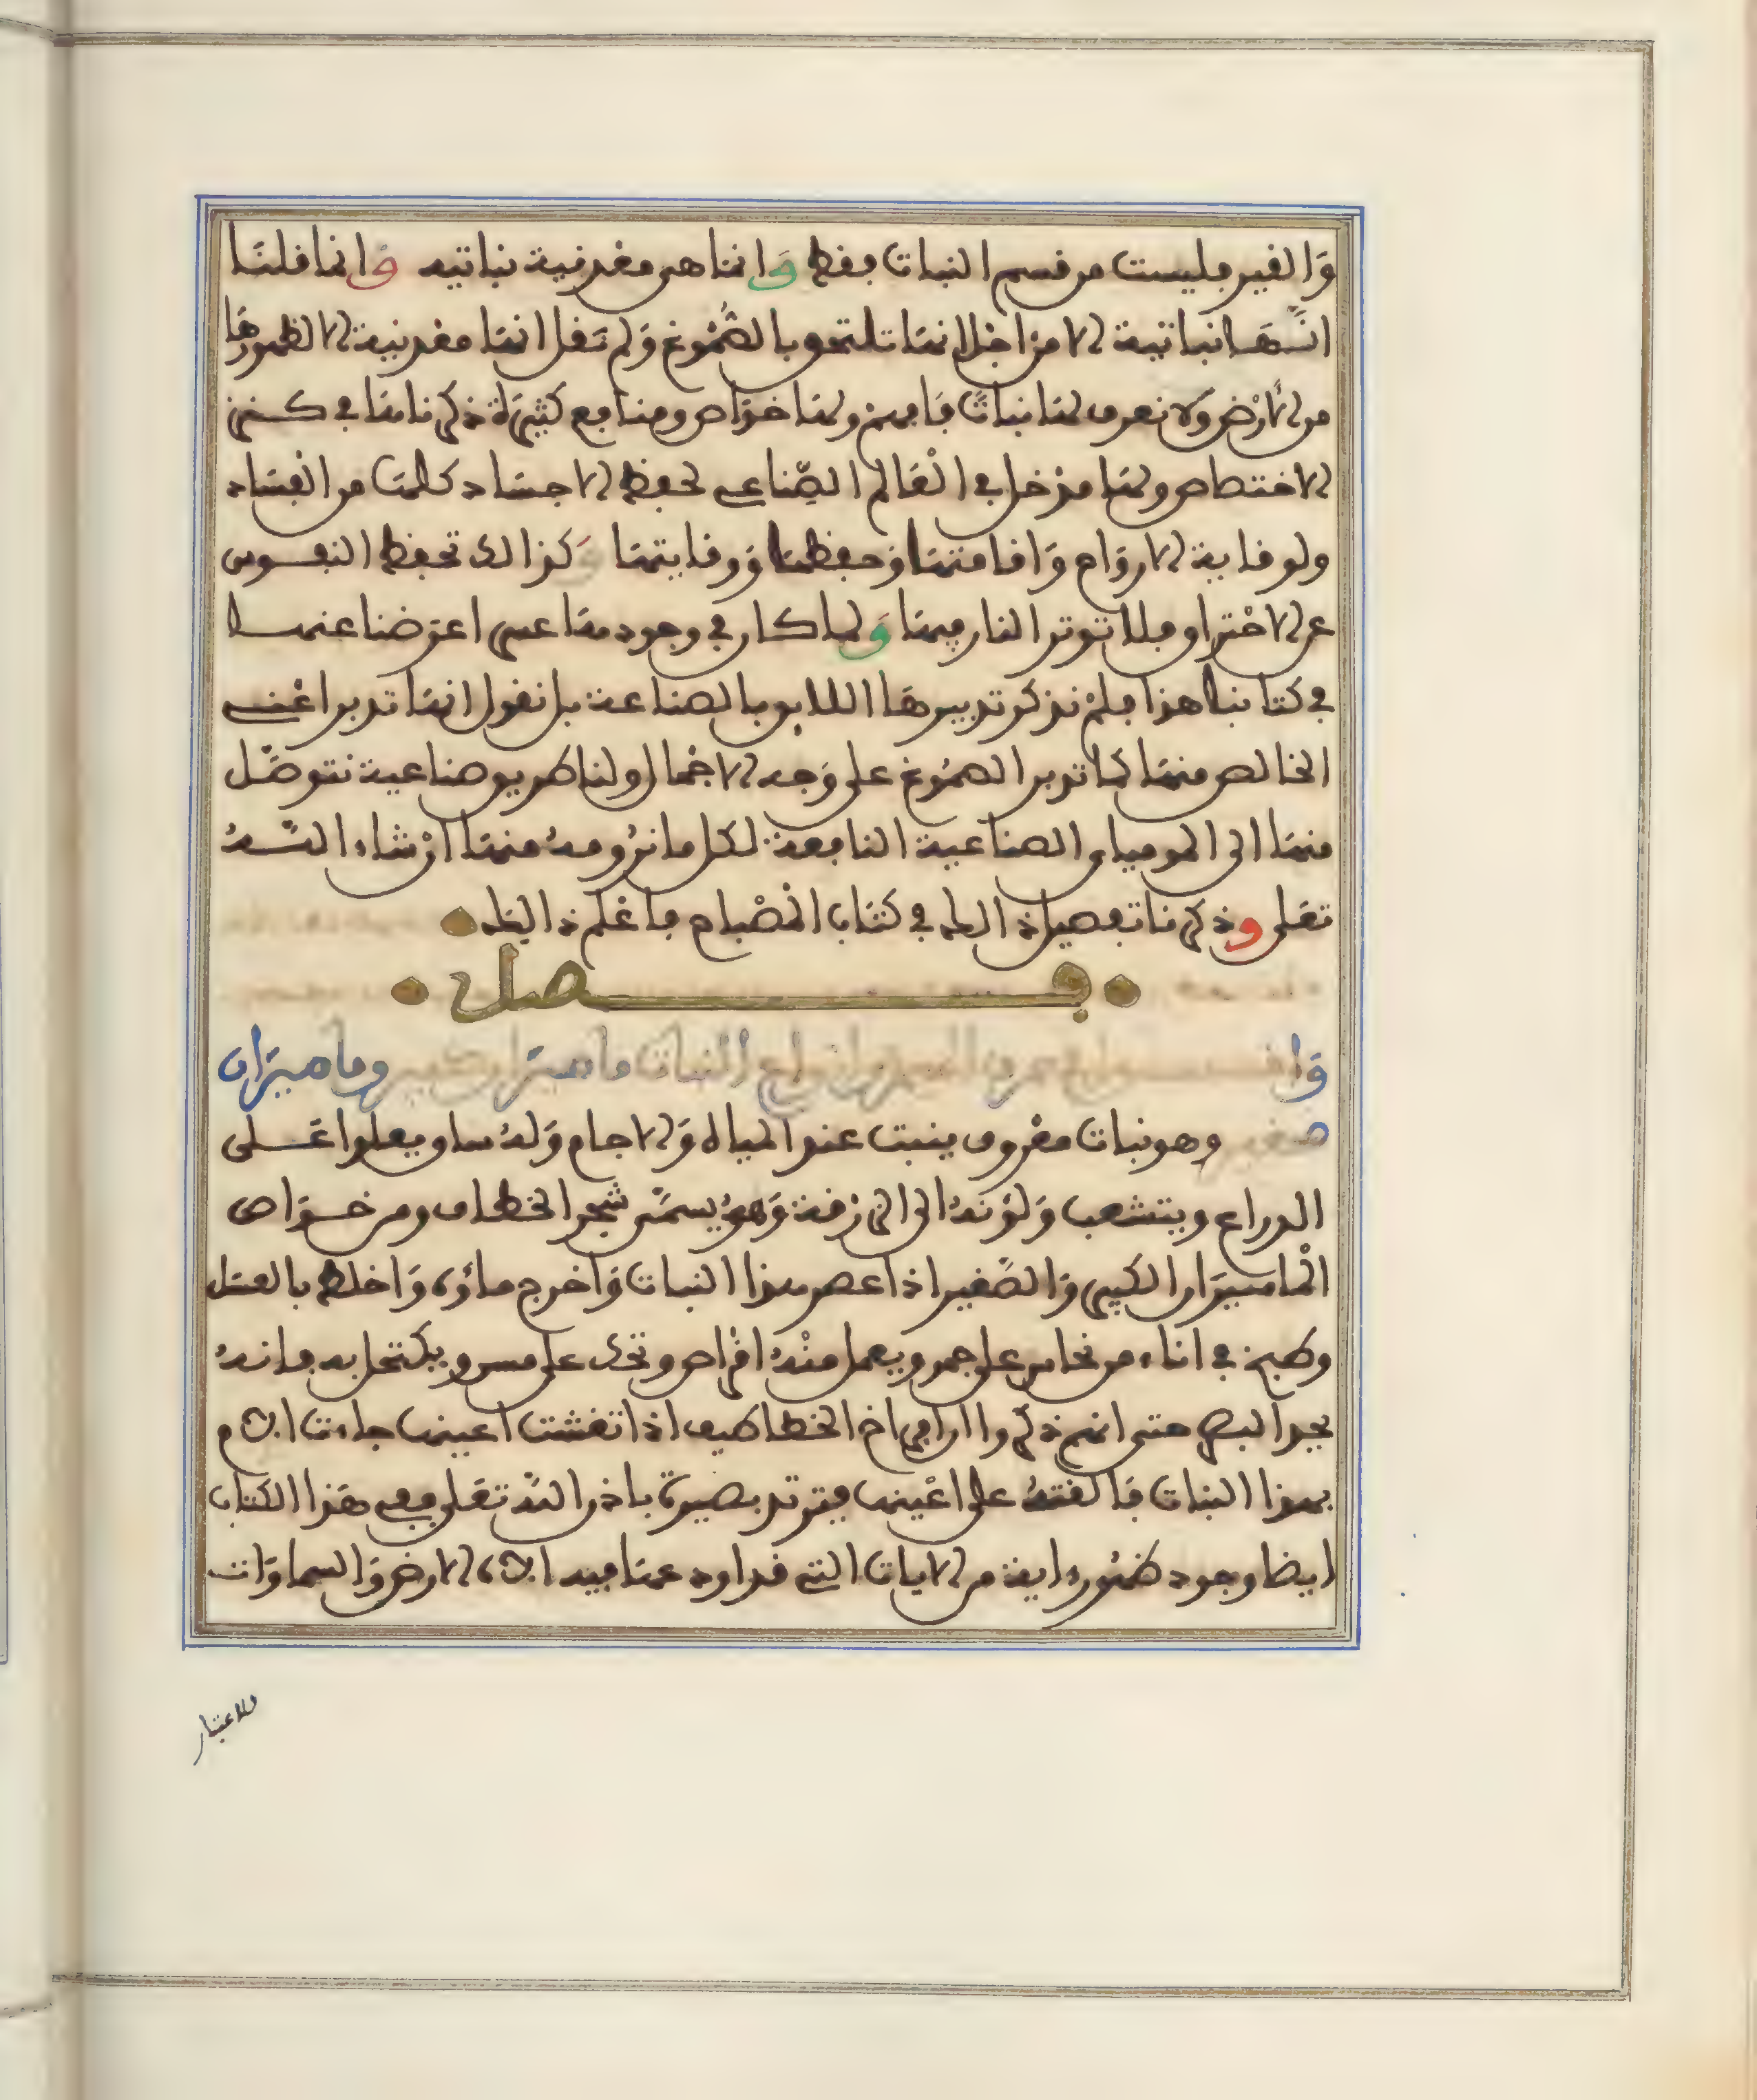 وَالقير فليست من قسم النبات فقط وَانما هى معدنية نباتيه وَانما قلنَا
انَّهَا نباتية لا من اجل انهَا تلتحق بالصُّمُوغ وَلم نَقل انهَا معدنية لا لظهورهَا
من الأرْض وَلا نعرف لهَا نباتًا فَافهم ولهَا خوَاص ومنافع كثيرَة ذكرناهَا فى كنز
الاختصاص ولهَا مدخل فى الْعَالم الصِّناعى لحفظ الاجسَاد كلهَا من الفسَاد
ولوقاية الاروَاح وَاقامتهَا وَحفظهَا وَوقايتهَا وَكذالك تحفظ النفوس
عن الاحْتراق فلا توثر النار فيهَا وَلما كان فى وجودهَا عسى اعرَضنا عنهَا
فى كتابنا هذا فلمْ نذكر تدبيرهَا اللايق بالصناعة بل نقول انهَا تدبر اعْنى
الخالص منهَا كما تدبر الصمُوغ على وَجه الاجْمال ولنا طريق صناعية نتوصَّل
منهَا الى الموميا والصناعية النافعة لكل ما نرُومهُ منهَا انْ شاء اللّه
تعَلى وذكرنا تفصيل ذالك فى كتَاب المصْباح فاعْلم ذالك
فصل
وَا النبات ماميرَان وماميرَان
صغير وهو نبات معْروف ينبت عند المياه وَالاجام وَلهُ ساق يعلوا عَلى
الدراع ويتشعب وَلوْنهُ الى الزرقة وَهوَ يسمَّى شجر الخطاف ومن خوَاص
الْماميرَان الكبير وَالصَّغير اذا عصر هذا النبات وَاخرج ماؤه وَاخلط بالعسَل
وطبخ فى اناء من نحاس على جمر ويعمل منْهُ اقراص وتحك على مسن ويكتحل به فانهُ
يحد البصر حتى انهم ذكروا ان افراخ الخطاطيف اذا تغشت اعينهَا جاءت الام
بهذا النبات فَالقتهُ على اعْينهَا فيرتد بصيرة باذن اللّه تعَلى وفى هَذا الكتَاب
ايضا وجود ظهُوره اية من الايات التى قد اودعهَا فيه الاه الارض وَالسماوَات
للاعتبار